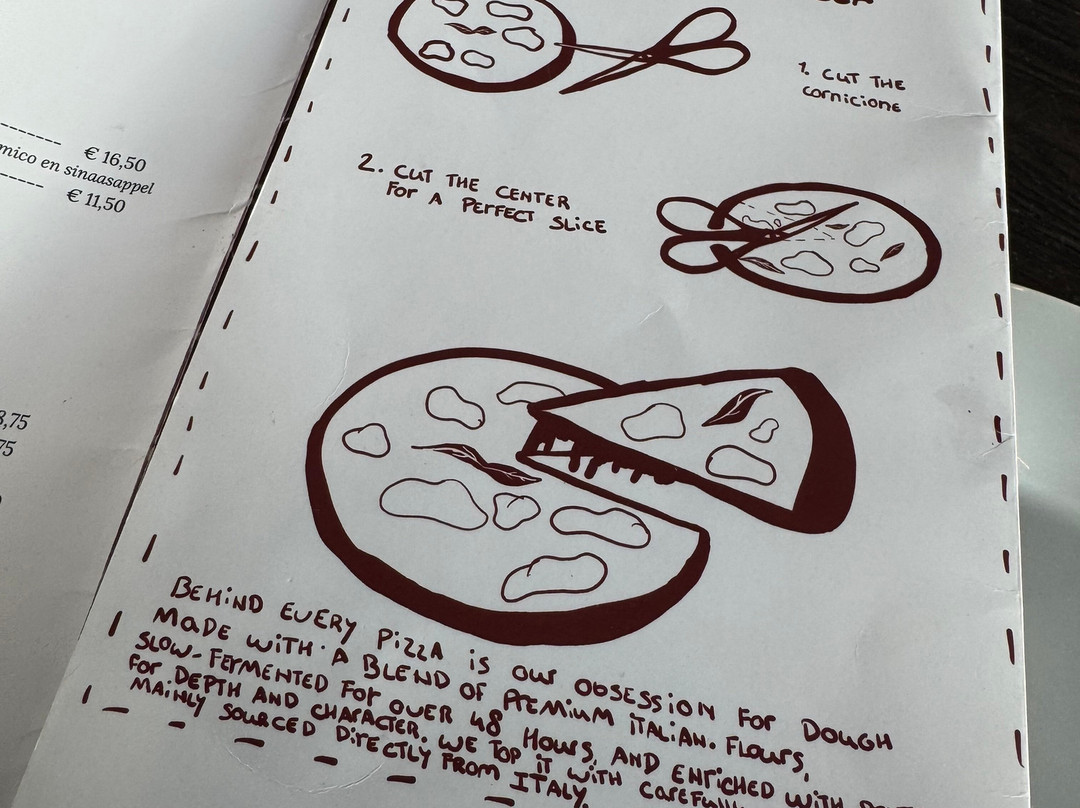 € 16,50
mico en sinaasappel
€ 11,50
75
1. CUT THE
cornicione
2. CUT THE CENTER
FOR A PERFECT SLICE
BEHIND EVERY PIZZA IS OUR OBSESSION FOR DOUGH
MADE WITH A BLEND OF PREMIUM ITALIAN FLOURS,
SLOW-FERMENTED FOR OVER 48 HOURS, AND ENRICHED WITH
FOR DEPTH AND CHARACTER. WE TOP IT WITH
MAINLY SOURCED DIRECTLY FROM ITALY.